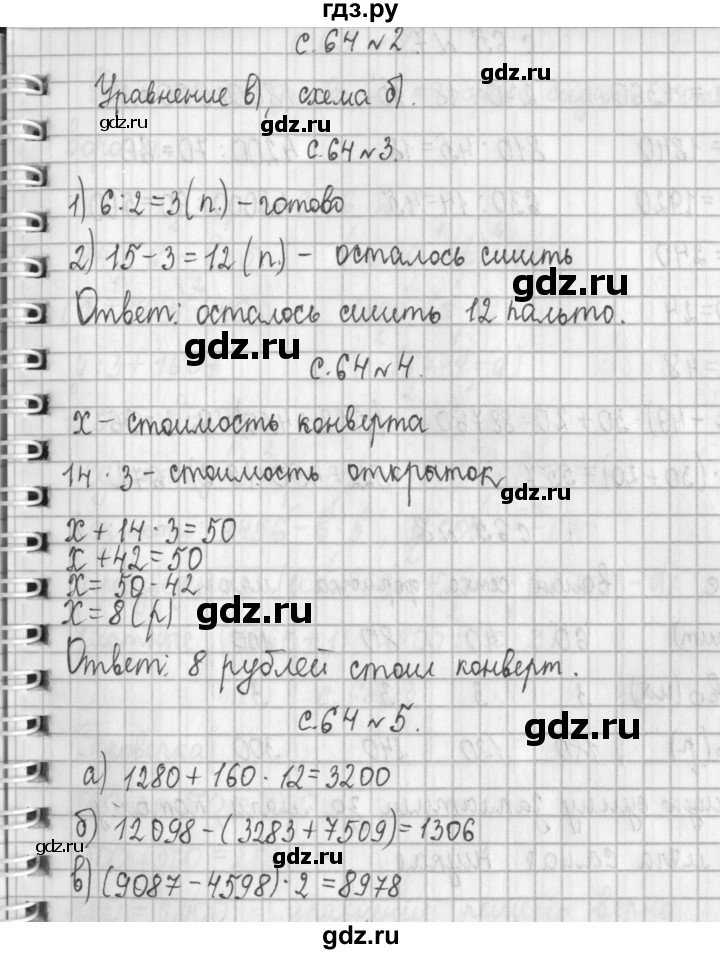 гдз.ру
с. 64 № 2.
Уравнение в), схема б).
gdz.ru
gdz.ru
с. 64 № 3.
1) 6 : 2 = 3 (п.) – готово
2) 15 – 3 = 12 (п.) – осталось сшить
gdz.ru
Ответ: осталось сшить 12 пальто.
gdz.ru
с. 64 № 4.
х – стоимость конверта
14 · 3 – стоимость открыток
gdz.ru
х + 14 · 3 = 50
х + 42 = 50
х = 50 - 42
х = 8 (р)
gdz.ru
Ответ: 8 рублей стоил конверт.
с. 64 № 5.
gdz.ru
а) 1280 + 160 · 12 = 3200
б) 12098 – (3283 + 7509) = 1306
gdz.ru
gdz.ru
в) (9087 – 4598) · 2 = 8978
gdz.ru